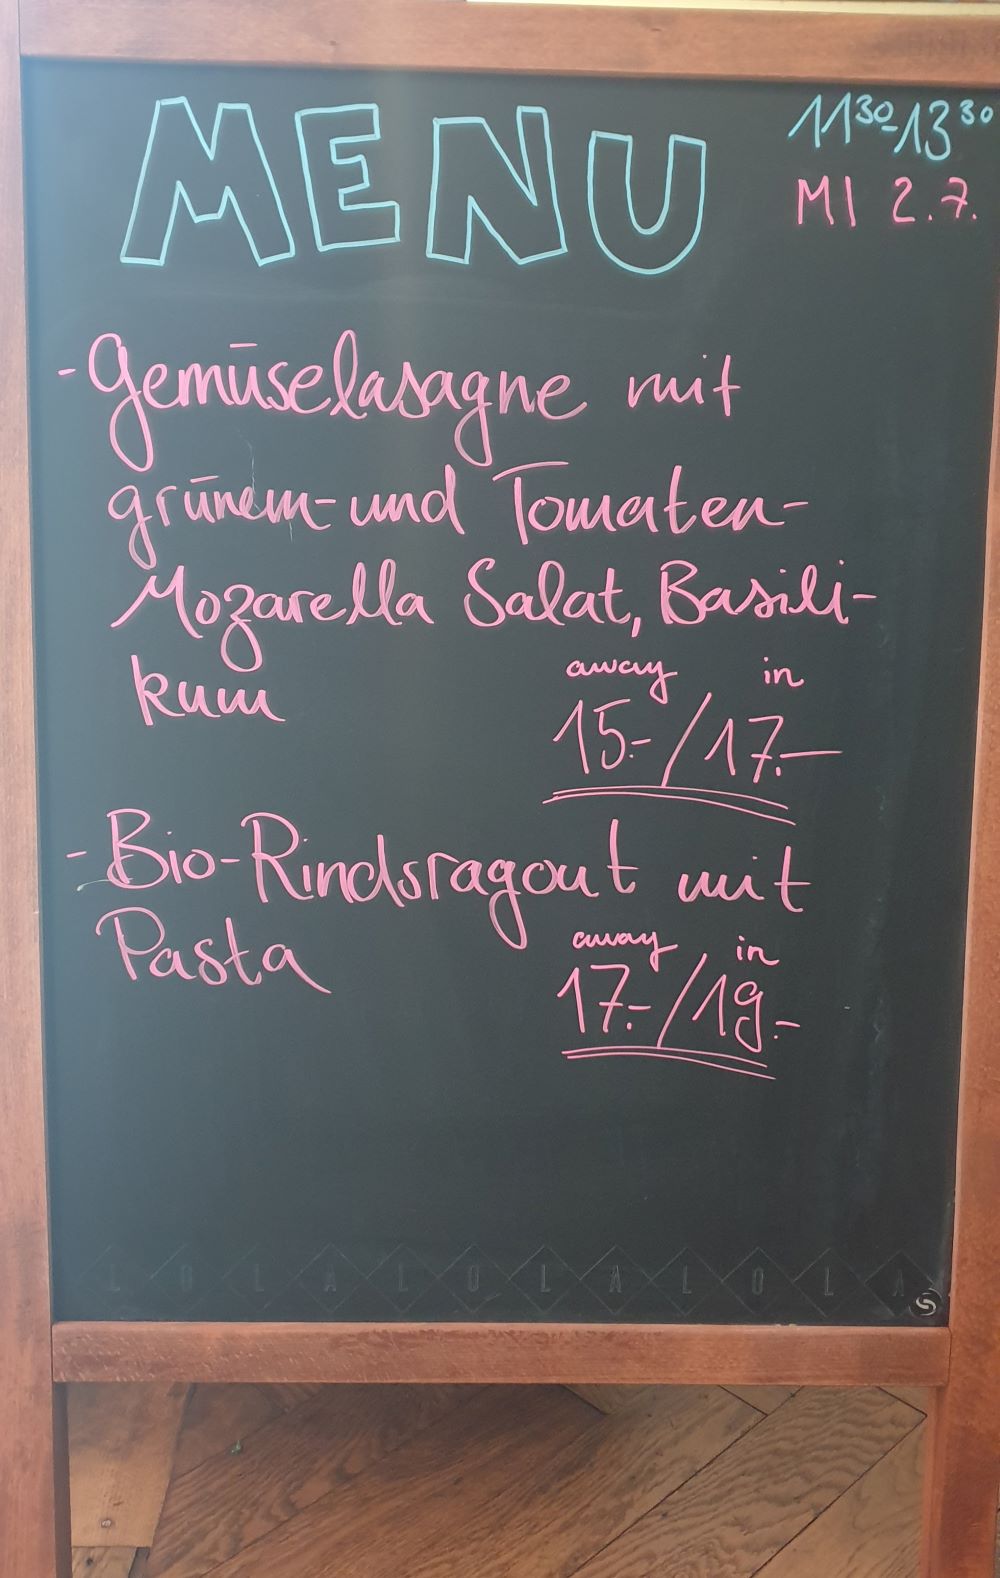 MENU
11³⁰-13³⁰
MI 2.7.
- Gemüselasagne mit
grünem- und Tomaten-
Mozarella Salat, Basili-
kum
away in
15.- / 17.-
- Bio-Rindsragout mit
Pasta
away in
17.- / 19.-
LOLALOLALOLA